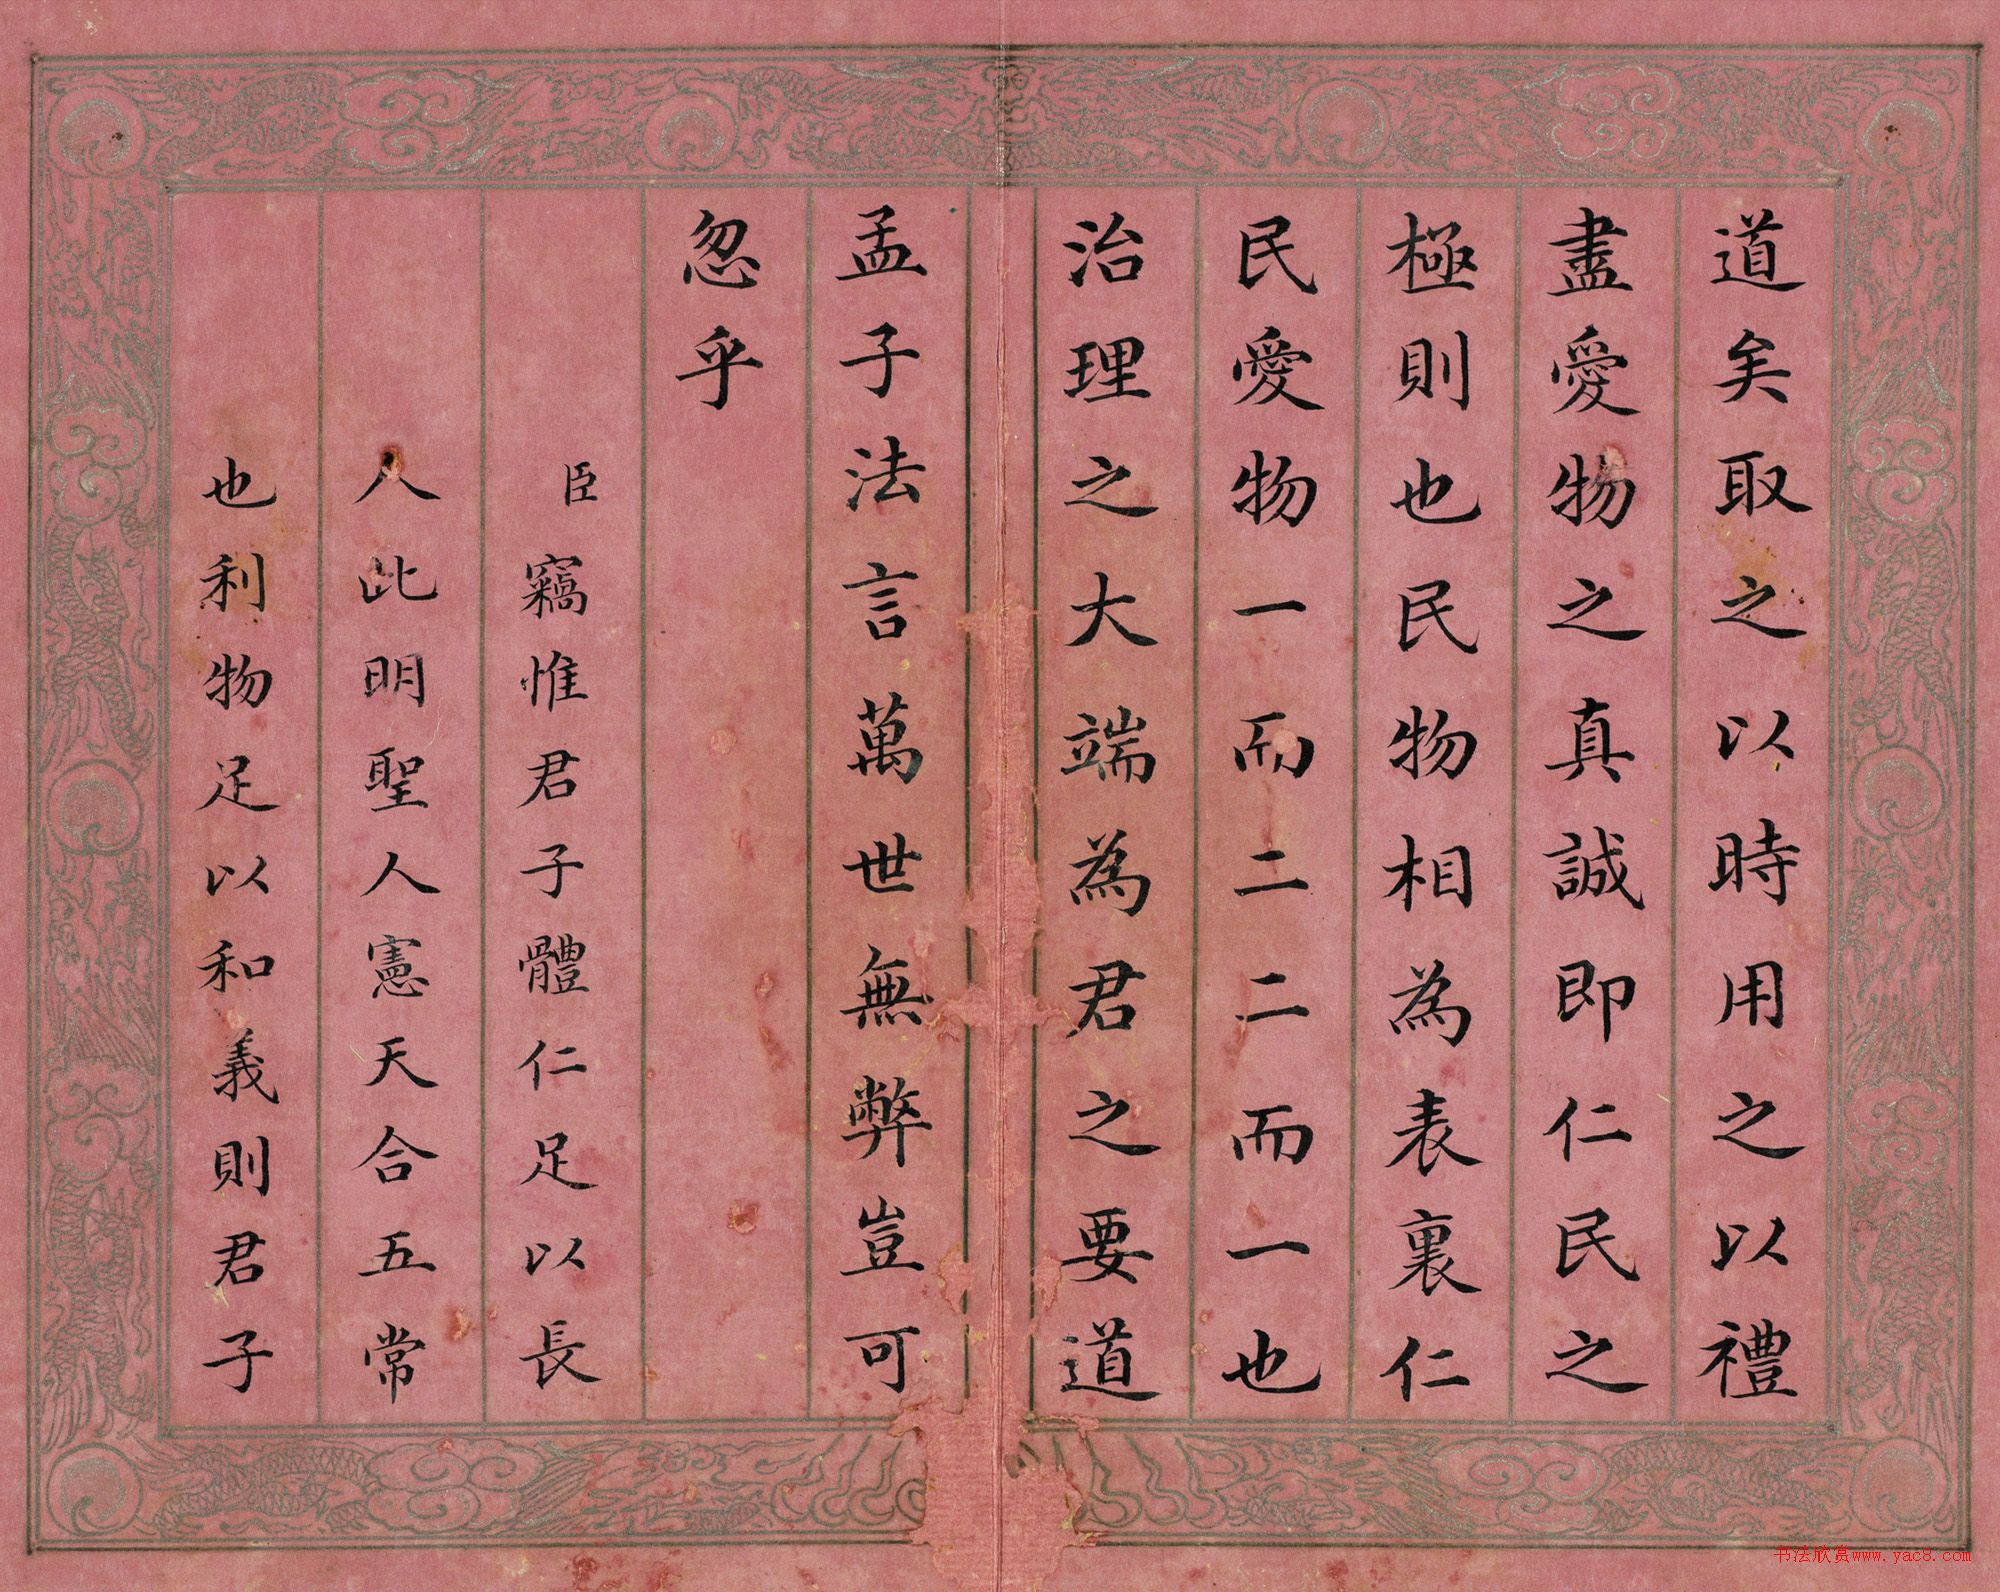 道矣取之以時用之以禮
盡愛物之真誠即仁民之
極則也民物相為表裏仁
民愛物一而二二而一也
治理之大端為君之要道
孟子法言萬世無弊豈可
忽乎
臣竊惟君子體仁足以長
人此明聖人憲天合五常
也利物足以和義則君子
书法欣赏www.yac8.com